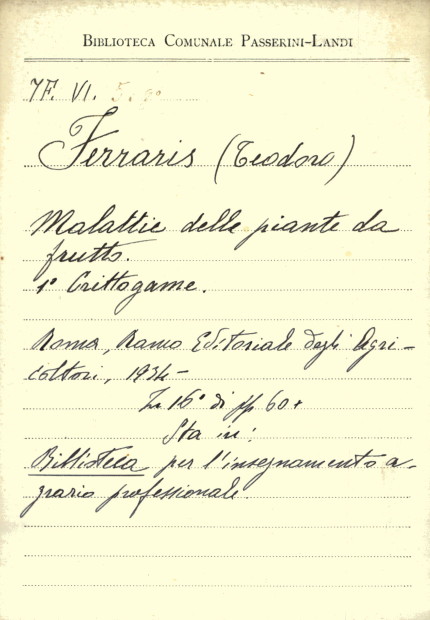 BIBLIOTECA COMUNALE PASSERINI-LANDI
7F. VI. 5.
Ferraris (Teodoro)
Malattie delle piante da
frutto.
1° Crittogame.
Roma, Ramo Editoriale degli Agri-
coltori, 1934-
In 16° di pp 60+
Sta in:
Biblioteca per l'insegnamento a-
grario professionale.